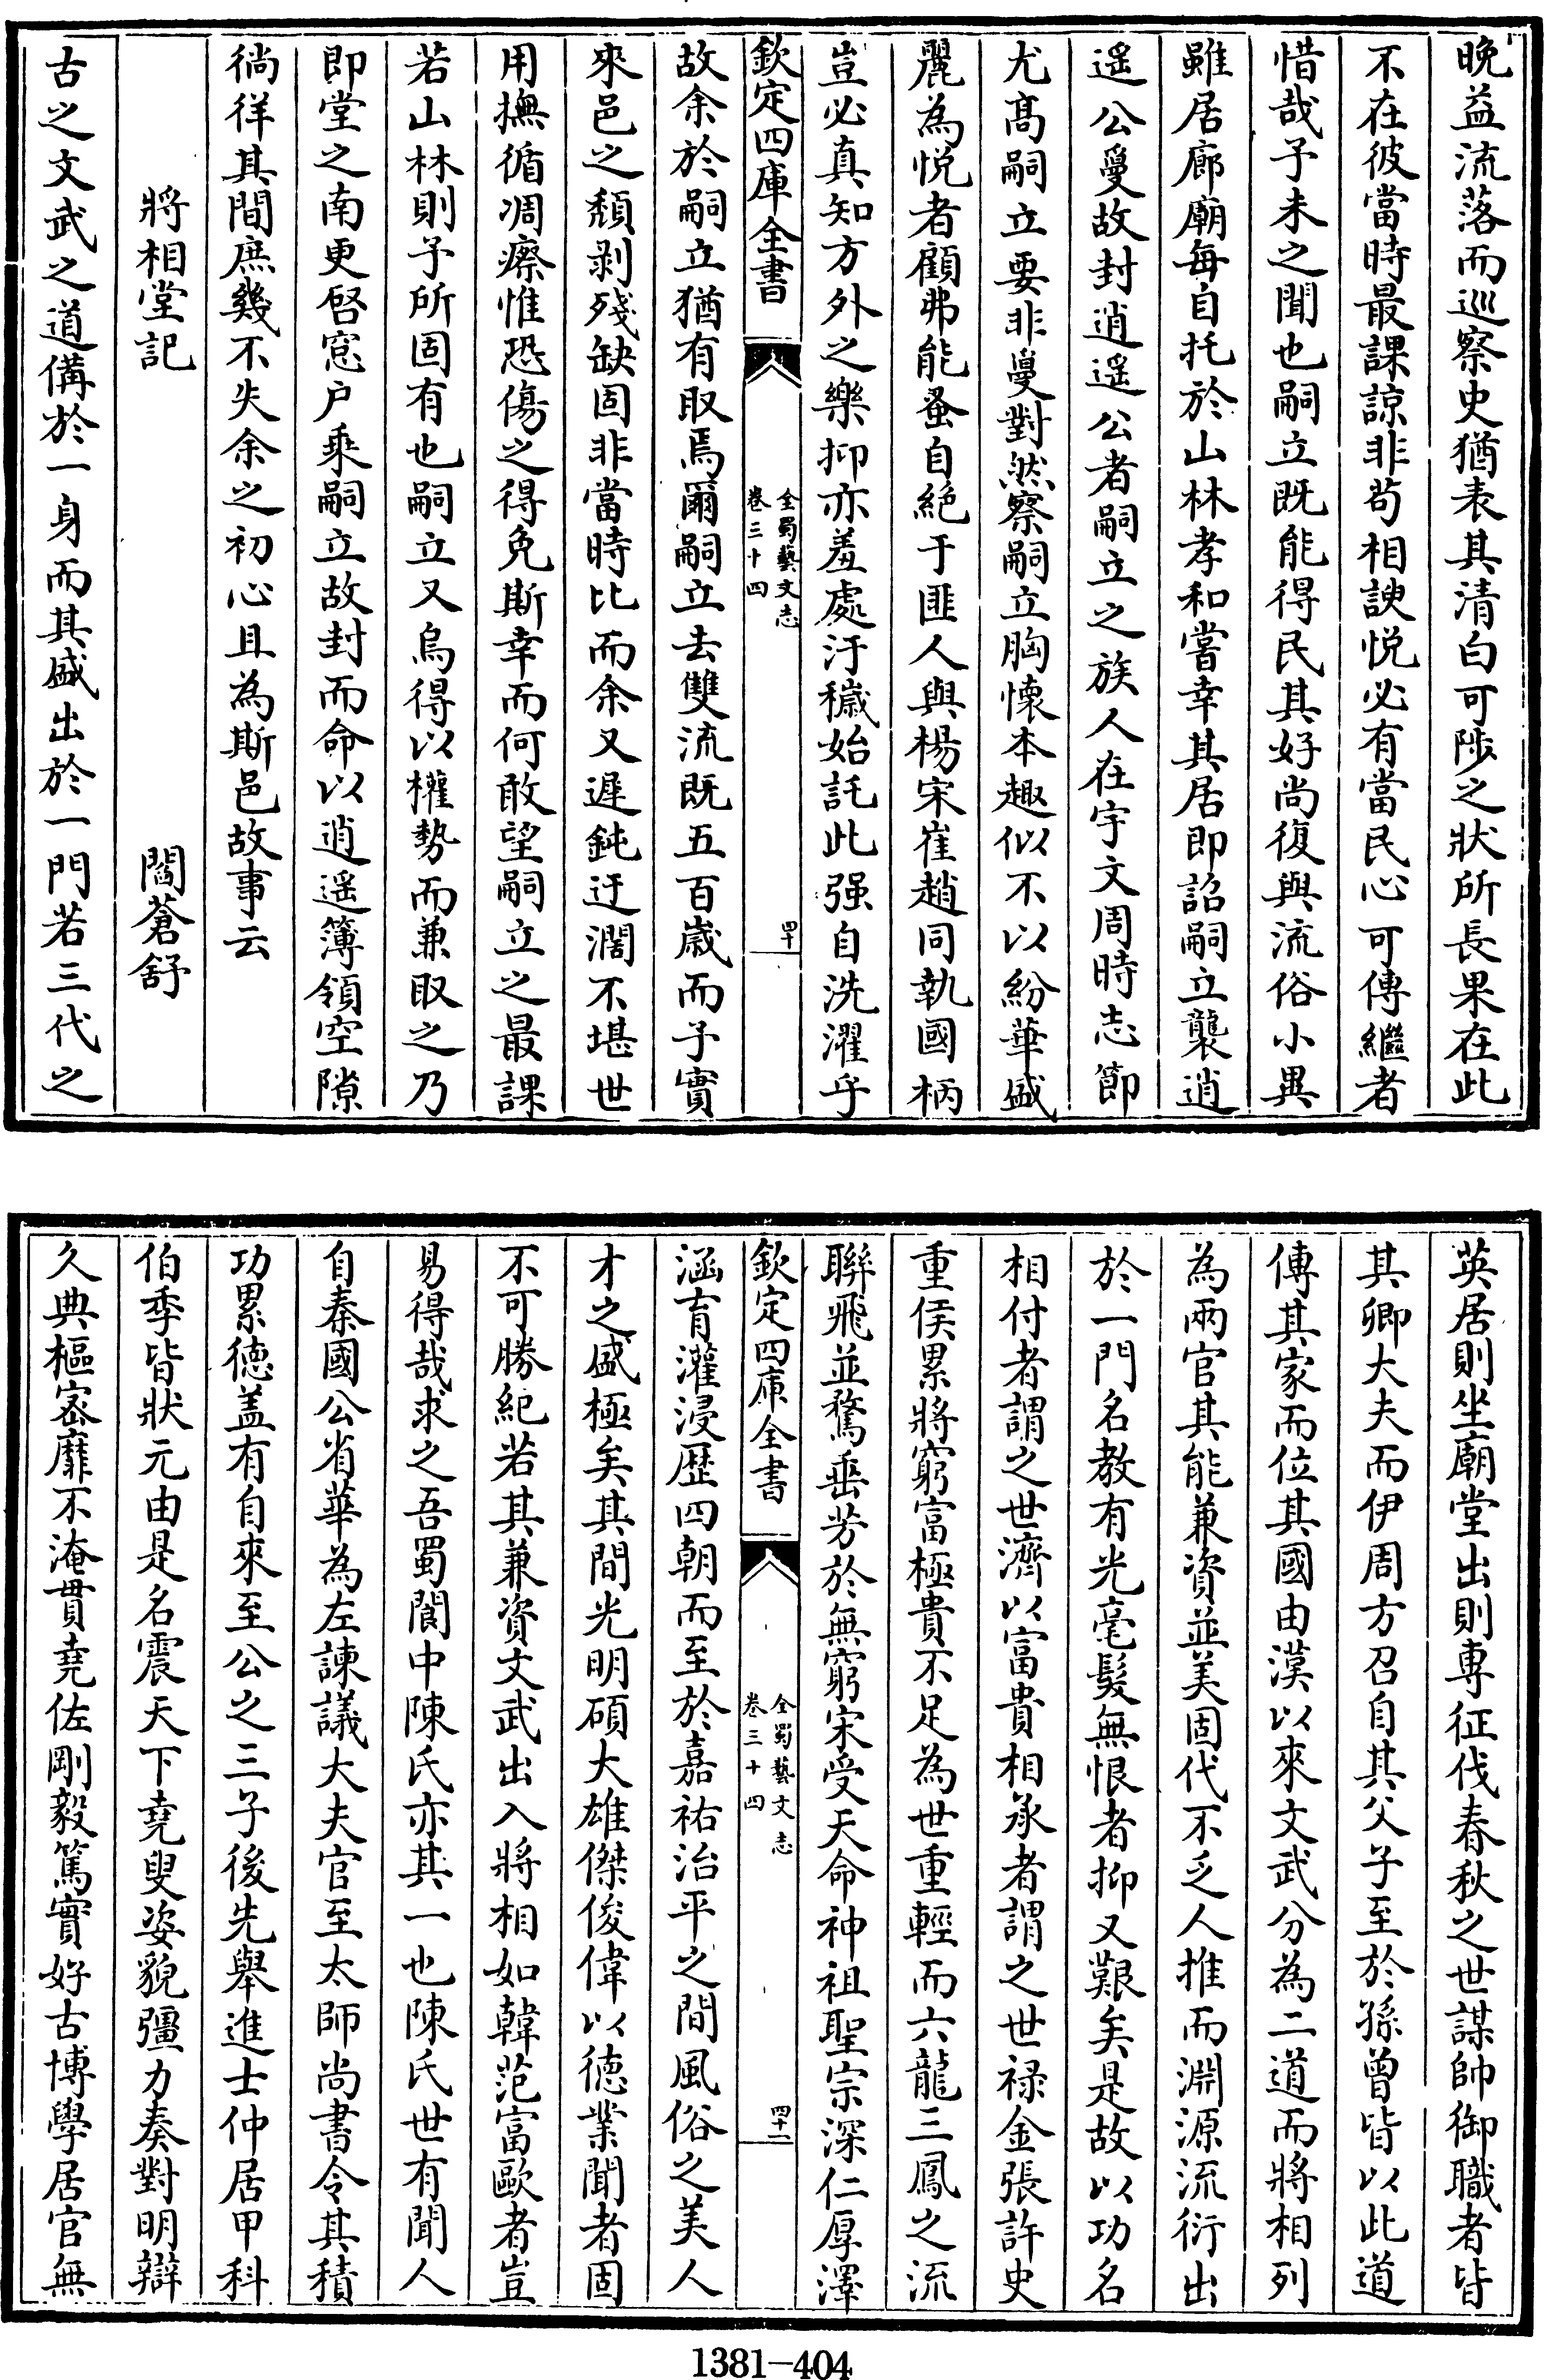 晚益流落而巡察史猶表其清白可陟之狀所長果在此
不在彼當時最課諒非苟相諛悦必有當民心可傳繼者
惜哉予未之聞也嗣立既能得民其好尚復與流俗小異
雖居廊廟每自托於山林孝和嘗幸其居即詔嗣立襲逍
遥公敻故封逍遥公者嗣立之族人在宇文周時志節
尤高嗣立要非敻對然察嗣立胸懷本趣似不以紛華盛
麗為悦者顧弗能蚤自絶于匪人與楊宋崔趙同執國柄
豈必真知方外之樂抑亦羞處汙穢始託此强自洗濯乎
欽定四庫全書
全蜀藝文志
卷三十四
四十
故余於嗣立猶有取焉爾嗣立去雙流既五百歲而予實
來邑之頽剥殘缺固非當時比而余又遲鈍迂濶不堪世
用撫循凋瘵惟恐傷之得免斯幸而何敢望嗣立之最課
若山林則予所固有也嗣立又烏得以權勢而兼取之乃
即堂之南更啓窓户乘嗣立故封而命以逍遥簿領空隙
徜徉其間庶幾不失余之初心且為斯邑故事云
將相堂記 閻蒼舒
古之文武之道備於一身而其盛出於一門若三代之
英居則坐廟堂出則專征伐春秋之世謀帥御職者皆
其卿大夫而伊周方召自其父子至於孫曾皆以此道
傳其家而位其國由漢以來文武分為二道而將相列
為兩官其能兼資並美固代不乏人推而淵源流衍出
於一門名教有光毫髮無恨者抑又艱矣是故以功名
相付者謂之世濟以富貴相承者謂之世禄金張許史
重侯累將窮富極貴不足為世重輕而六龍三鳳之流
聯飛並騖垂芳於無窮宋受天命神祖聖宗深仁厚澤
欽定四庫全書
全蜀藝文志
卷三十四
四十一
涵育灌浸歴四朝而至於嘉祐治平之間風俗之美人
才之盛極矣其間光明碩大雄傑俊偉以德業聞者固
不可勝紀若其兼資文武出入將相如韓范富歐者豈
易得哉求之吾蜀閬中陳氏亦其一也陳氏世有聞人
自秦國公省華為左諫議大夫官至太師尚書令其積
功累德盖有自來至公之三子後先舉進士仲居甲科
伯季皆狀元由是名震天下堯叟姿貌彊力奏對明辯
久典樞宻靡不淹貫堯佐剛毅篤實好古博學居官無
1381-404